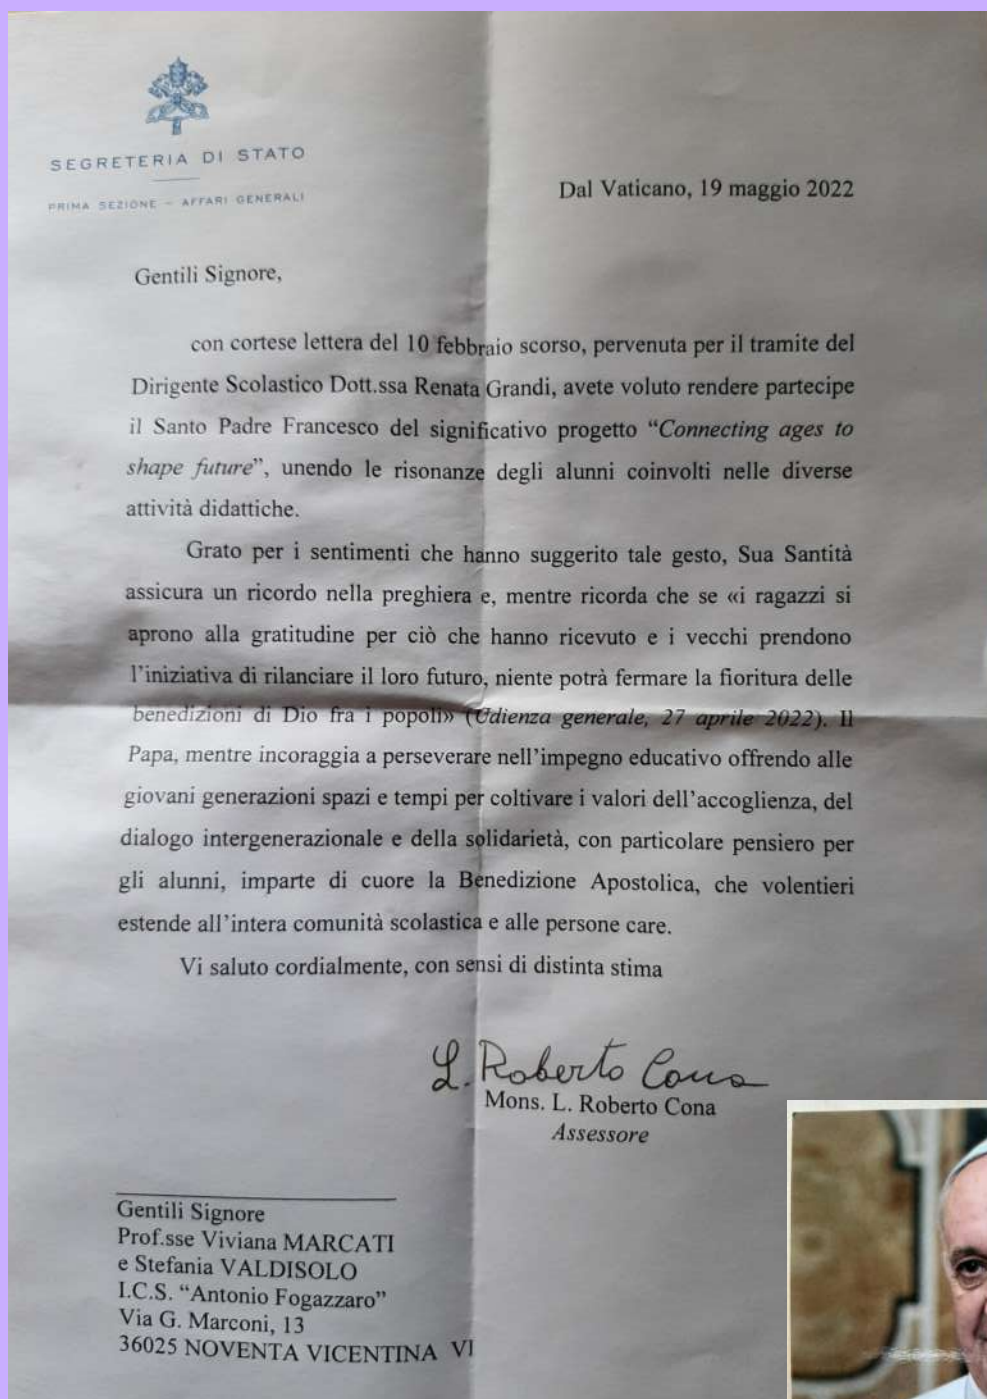 SEGRETERIA DI STATO
PRIMA SEZIONE – AFFARI GENERALI
Dal Vaticano, 19 maggio 2022
Gentili Signore,
con cortese lettera del 10 febbraio scorso, pervenuta per il tramite del
Dirigente Scolastico Dott.ssa Renata Grandi, avete voluto rendere partecipe
il Santo Padre Francesco del significativo progetto “Connecting ages to
shape future”, unendo le risonanze degli alunni coinvolti nelle diverse
attività didattiche.
Grato per i sentimenti che hanno suggerito tale gesto, Sua Santità
assicura un ricordo nella preghiera e, mentre ricorda che se «i ragazzi si
aprono alla gratitudine per ciò che hanno ricevuto e i vecchi prendono
l’iniziativa di rilanciare il loro futuro, niente potrà fermare la fioritura delle
benedizioni di Dio fra i popoli» (Udienza generale, 27 aprile 2022). Il
Papa, mentre incoraggia a perseverare nell’impegno educativo offrendo alle
giovani generazioni spazi e tempi per coltivare i valori dell’accoglienza, del
dialogo intergenerazionale e della solidarietà, con particolare pensiero per
gli alunni, imparte di cuore la Benedizione Apostolica, che volentieri
estende all’intera comunità scolastica e alle persone care.
Vi saluto cordialmente, con sensi di distinta stima
L. Roberto Cona
Mons. L. Roberto Cona
Assessore
Gentili Signore
Prof.sse Viviana MARCATI
e Stefania VALDISOLO
I.C.S. “Antonio Fogazzaro”
Via G. Marconi, 13
36025 NOVENTA VICENTINA VI